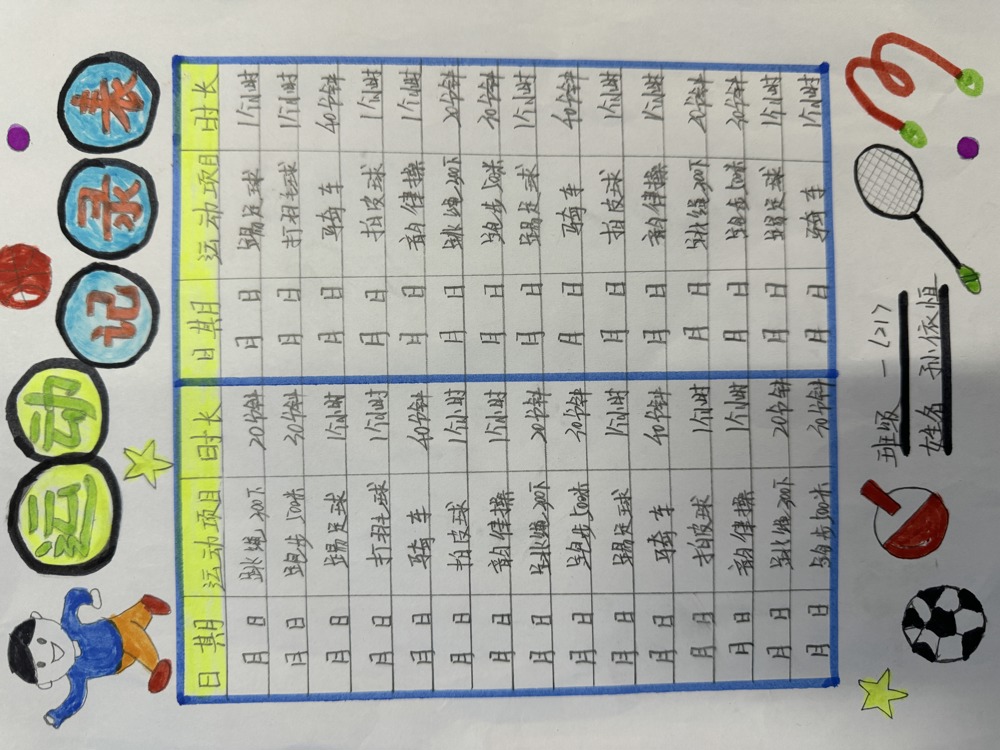 运动记录表
日期 运动项目 时长 日期 运动项目 时长
月 日 跳绳300下 20分钟 月 日 踢足球 1个小时
月 日 跑步500米 30分钟 月 日 打羽毛球 1个小时
月 日 踢足球 1个小时 月 日 骑车 40分钟
月 日 打羽毛球 1个小时 月 日 拍皮球 1个小时
月 日 骑车 40分钟 月 日 韵律操 1个小时
月 日 拍皮球 1个小时 月 日 跳绳300下 20分钟
月 日 韵律操 1个小时 月 日 跑步500米 30分钟
月 日 跳绳300下 20分钟 月 日 踢足球 1个小时
月 日 跑步500米 30分钟 月 日 骑车 40分钟
月 日 踢足球 1个小时 月 日 拍皮球 1个小时
月 日 骑车 40分钟 月 日 韵律操 1个小时
月 日 拍皮球 1个小时 月 日 跳绳300下 20分钟
月 日 韵律操 1个小时 月 日 跑步500米 30分钟
月 日 跳绳300下 20分钟 月 日 踢足球 1个小时
月 日 跑步500米 30分钟 月 日 骑车 1个小时
班级 一<21>
姓名 孙依恒